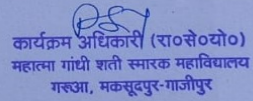 कार्यक्रम अधिकारी (रा०से०यो०)
महात्मा गांधी शती स्मारक महाविद्यालय
गरुआ, मकसूदपुर-गाजीपुर